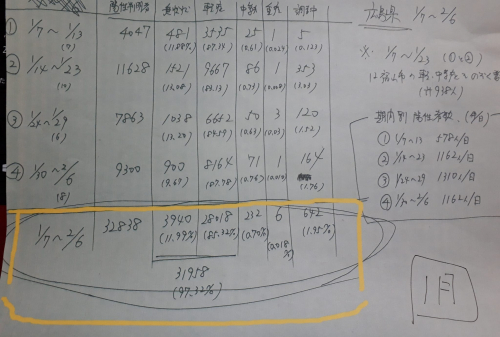 陽性判明者 無症状 軽症 中等 重症 調査中
① 1/7〜1/13 4047 481 3535 25 1 5
(7) (11.88%) (87.34) (0.61) (0.024) (0.123)
② 1/14〜1/23 11628 1521 9667 86 1 353
(10) (13.08) (83.13) (0.73) (0.008) (3.03)
③ 1/24〜1/29 7863 1038 6652 50 3 120
(6) (13.20) (84.59) (0.63) (0.03) (1.52)
④ 1/30〜2/6 9300 900 8164 71 1 164
(8) (9.67) (87.78) (0.76) (0.010) (1.76)
1/7〜2/6 32838 3940 28018 232 6 642
(11.99%) (85.32%) (0.70%) (0.018%) (1.95%)
31958
(97.32%)
広島県 1/7〜2/6
※ 1/7〜1/23 (①と②)
(計938人)
期内別 陽性者数
① 1/7〜13 578人/日
② 1/14〜23 1162人/日
③ 1/24〜29 1310人/日
④ 1/30〜2/6 1162人/日
1月